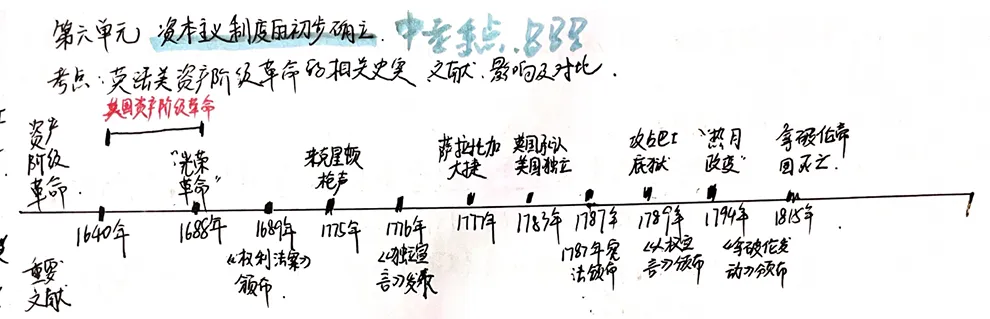 第六单元 资本主义制度的初步确立. 中考重点.
考点:英法美资产阶级革命的相关史实 文献.影响及对比.
英国资产阶级革命
资产
阶级
革命.
"光荣
革命"
莱克星顿
枪声.
萨拉托加
大捷
英国承认
美国独立.
攻占巴士
底狱.
"热月
政变"
拿破仑帝
国灭亡.
1640年
1688年
1689年
1775年
1776年
1777年
1783年
1787年
1789年
1794年
1815年
重要
文献
《权利法案》
颁布.
《独立宣
言》发表
1787年宪
法颁布.
《人权宣
言》颁布